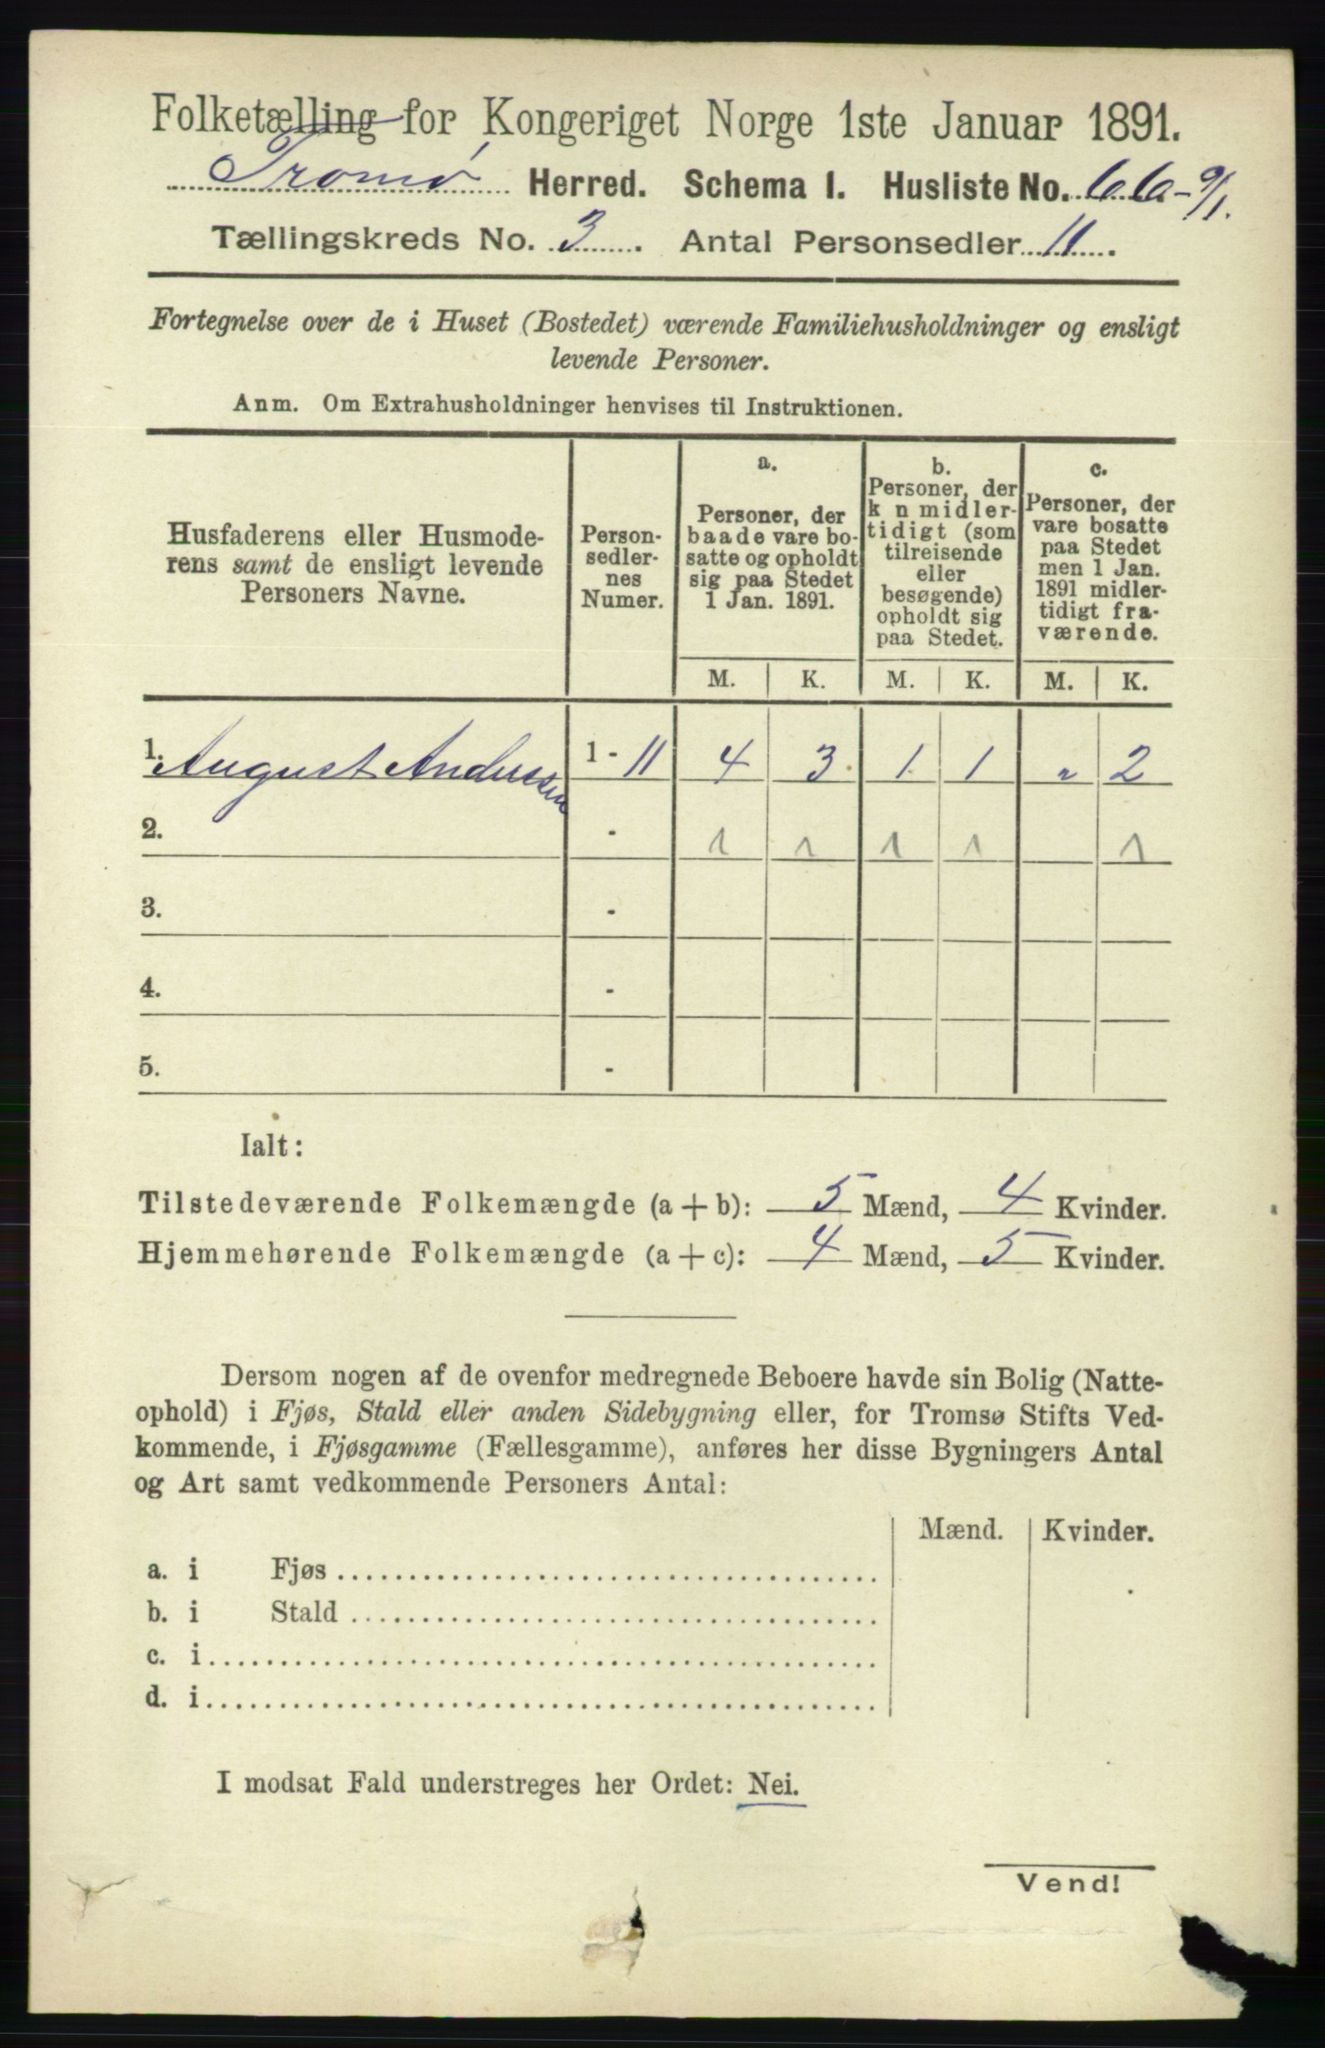 Folketælling for Kongeriget Norge 1ste Januar 1891.
Tromø Herred. Schema I. Husliste No. 66 - 9/1.
Tællingskreds No. 3. Antal Personsedler 11.
Fortegnelse over de i Huset (Bostedet) værende Familiehusholdninger og ensligt
levende Personer.
Anm. Om Extrahusholdninger henvises til Instruktionen.
Husfaderens eller Husmode-
rens samt de ensligt levende
Personers Navne.
Person-
sedler-
nes
Numer.
a.
Personer, der
baade vare bo-
satte og opholdt
sig paa Stedet
1 Jan. 1891.
b.
Personer, der
k n midler-
tidigt (som
tilreisende
eller
besøgende)
opholdt sig
paa Stedet.
c.
Personer, der
vare bosatte
paa Stedet
men 1 Jan.
1891 midler-
tidigt fra-
værende.
M. K. M. K. M. K.
1. August Anderssen 1 - 11 4 3 1 1 " 2
2. - 1 1 1 1 1
3. -
4. -
5. -
Ialt:
Tilstedeværende Folkemængde (a + b): 5 Mænd, 4 Kvinder.
Hjemmehørende Folkemængde (a + c): 4 Mænd, 5 Kvinder.
Dersom nogen af de ovenfor medregnede Beboere havde sin Bolig (Natte-
ophold) i Fjøs, Stald eller anden Sidebygning eller, for Tromsø Stifts Ved-
kommende, i Fjøsgamme (Fællesgamme), anføres her disse Bygningers Antal
og Art samt vedkommende Personers Antal:
Mænd. Kvinder.
a. i Fjøs
b. i Stald
c. i
d. i
I modsat Fald understreges her Ordet: Nei.
Vend!